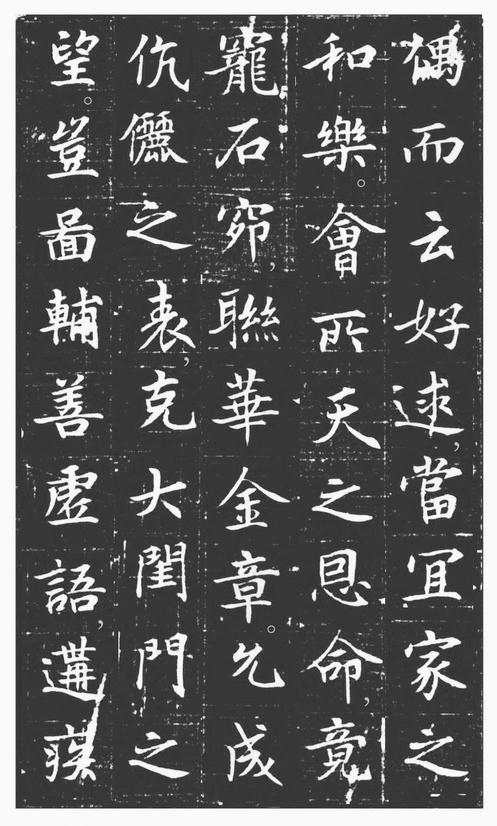 而云好逑,當冝家之
和樂。會所天之恩命,竟
寵石窌,聯華金章。允成
伉儷之表,克大閨門之
望。豈啚輔善虛語,遘瘼